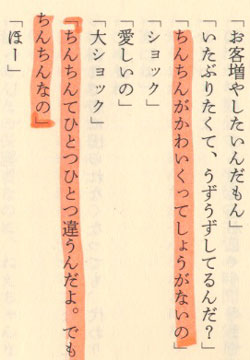 「お客増やしたいんだもん」
「いたぶりたくて、うずうずしてるんだ?」
「ちんちんがかわいくってしょうがないの」
「ショック」
「愛しいの」
「大ショック」
「ちんちんてひとつひとつ違うんだよ。でも
ちんちんなの」
「ほー」